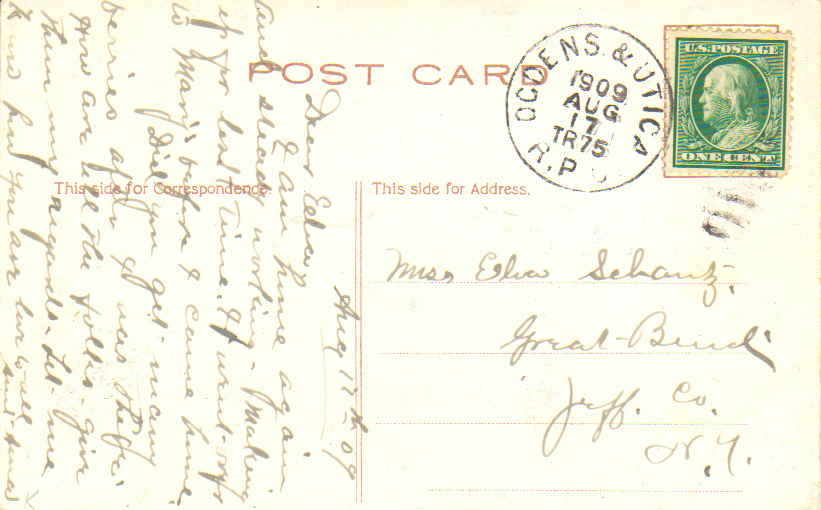 POST CARD
OGDENS. & UTICA
1909
AUG
17
TR75
R.P
U.S. POSTAGE
ONE CENT
This side for Correspondence.
This side for Address.
Miss Elva Schantz.
Great Bend
Jeff. Co.
N.Y.
Aug 17th 09
Dear Elva
I am home again
and steady working - Making
up for lost time. I went over
to Mary's before I came home.
Did you get many
berries after I was there
How are all the folks - give
them my regards - Let me
know how you are